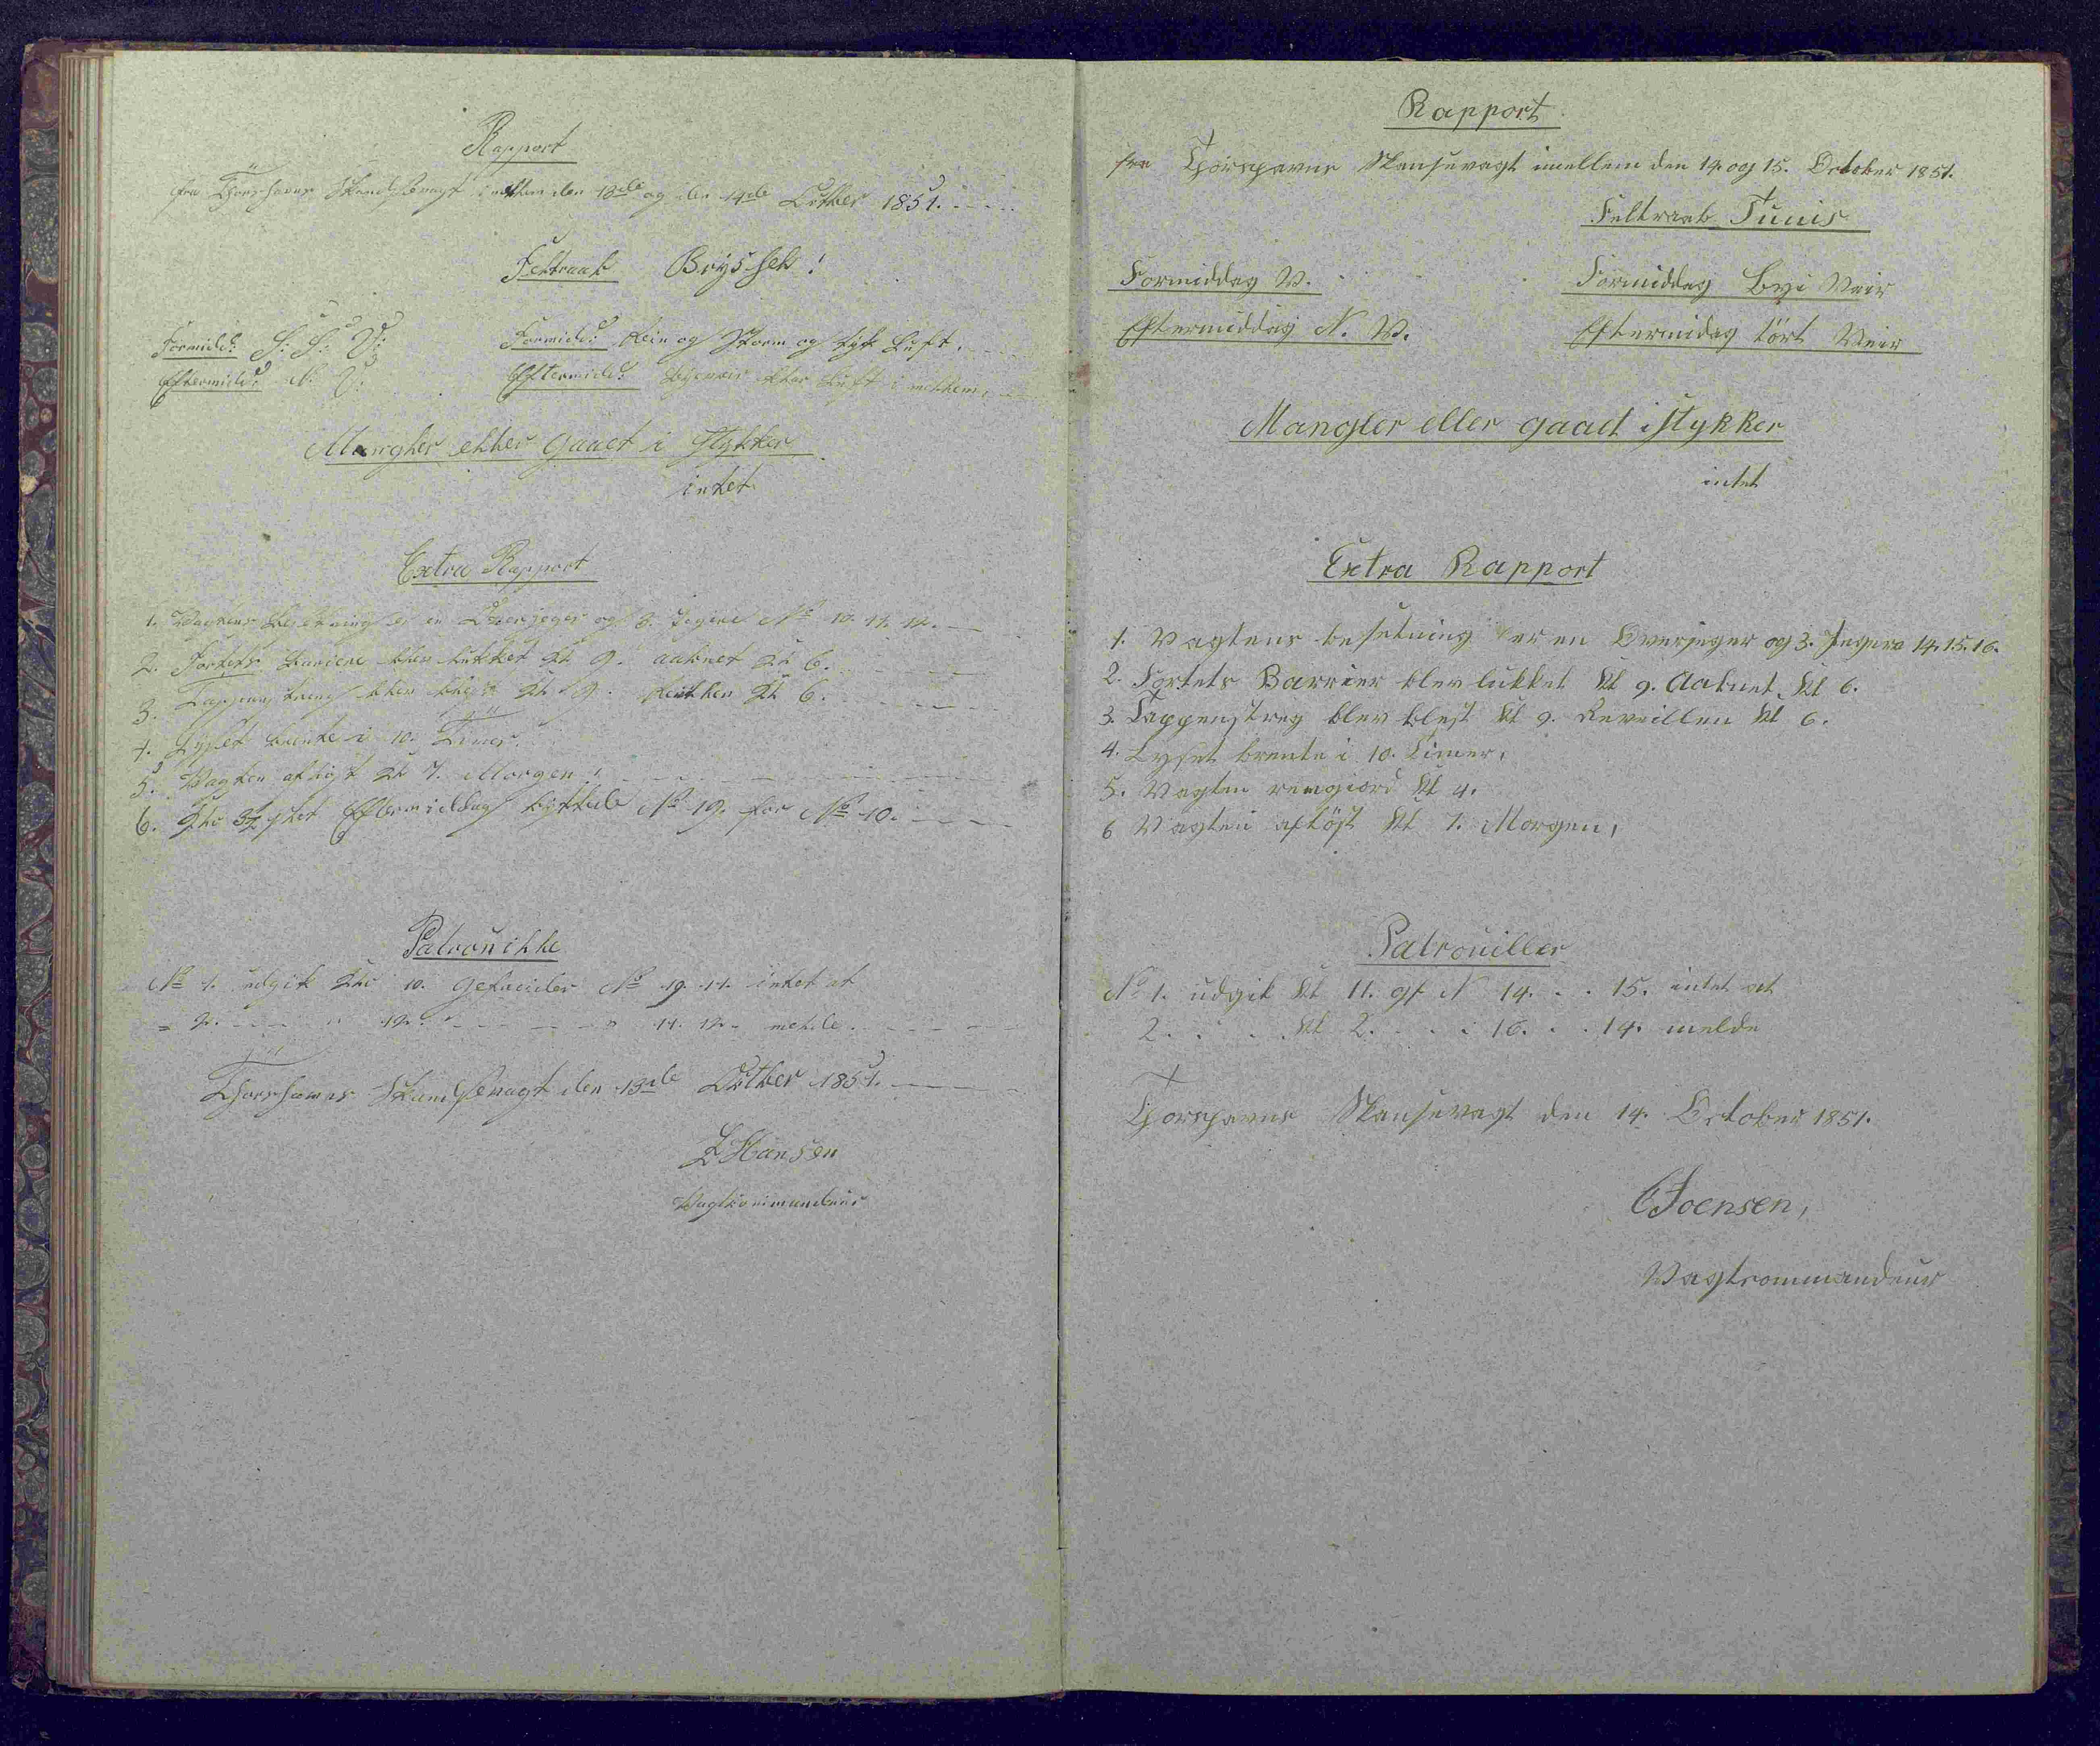 Rapport
fra Thorshavns Skandsevagt imellem den 13de og den 14de Octber 1851.
Feltraab Bryssel!
Formidd: S: S: V:
Formidd: Rein og Storm og tyk Luft.
Eftermidd: N: V:
Eftermidd: Byeveir klar Luft i mellem,
Mangler eller Gaaet i Stykker
intet
Extra Rapport
1. Vagtens Besetning er en Overjeger og 3. Jegere No 10. 11. 12.
2. Fortets Bariere blev lukket Kl 9. aabnet Kl 6.
3. Tappenstreng blev blest Kl 9. Kl 6.
4. Lyset brente i 10. Timer.
5. Vagten afløst Kl 7. Morgen!
6. Eftermiddag byttede No 19. for No 10.
Patrouille
No 1. udgik Kl 10. Gefreider No 19. 11. intet at
" 2. " 12. " 11. 12. melde.
Thorshavns Skandsevagt den 13de Octber 1851.
Hansen
Vagtkommandeur
Rapport
fra Thorshavns Skansevagt imellem den 14. og 15. October 1851.
Feltraab Tunis
Formiddag V.
Formiddag Byi Veir
Eftermiddag N. V.
Eftermidag tört Veir
Mangler eller gaaet i stykker
intet
Extra Rapport
1. Vagtens besetning er en Overjeger og 3. Jegere 14. 15. 16.
2. Fortets Barrier blev lukket Kl 9. Aabnet Kl 6.
3. Tappenstreg blev blest Kl 9. Reveillen Kl 6.
4. Lyset brente i 10. Timer,
5. Vagten rengiord Kl 4.
6 Vagten aflöst Kl 7. Morgen,
Patrouiller
No 1. udgik Kl 11. gf N 14. . . 15. intet at
2. . . . Kl 2. . . . 16. . . 14. melde
Thorshavns Skansevagt den 14. October 1851.
Joensen,
Vagtcommandeur